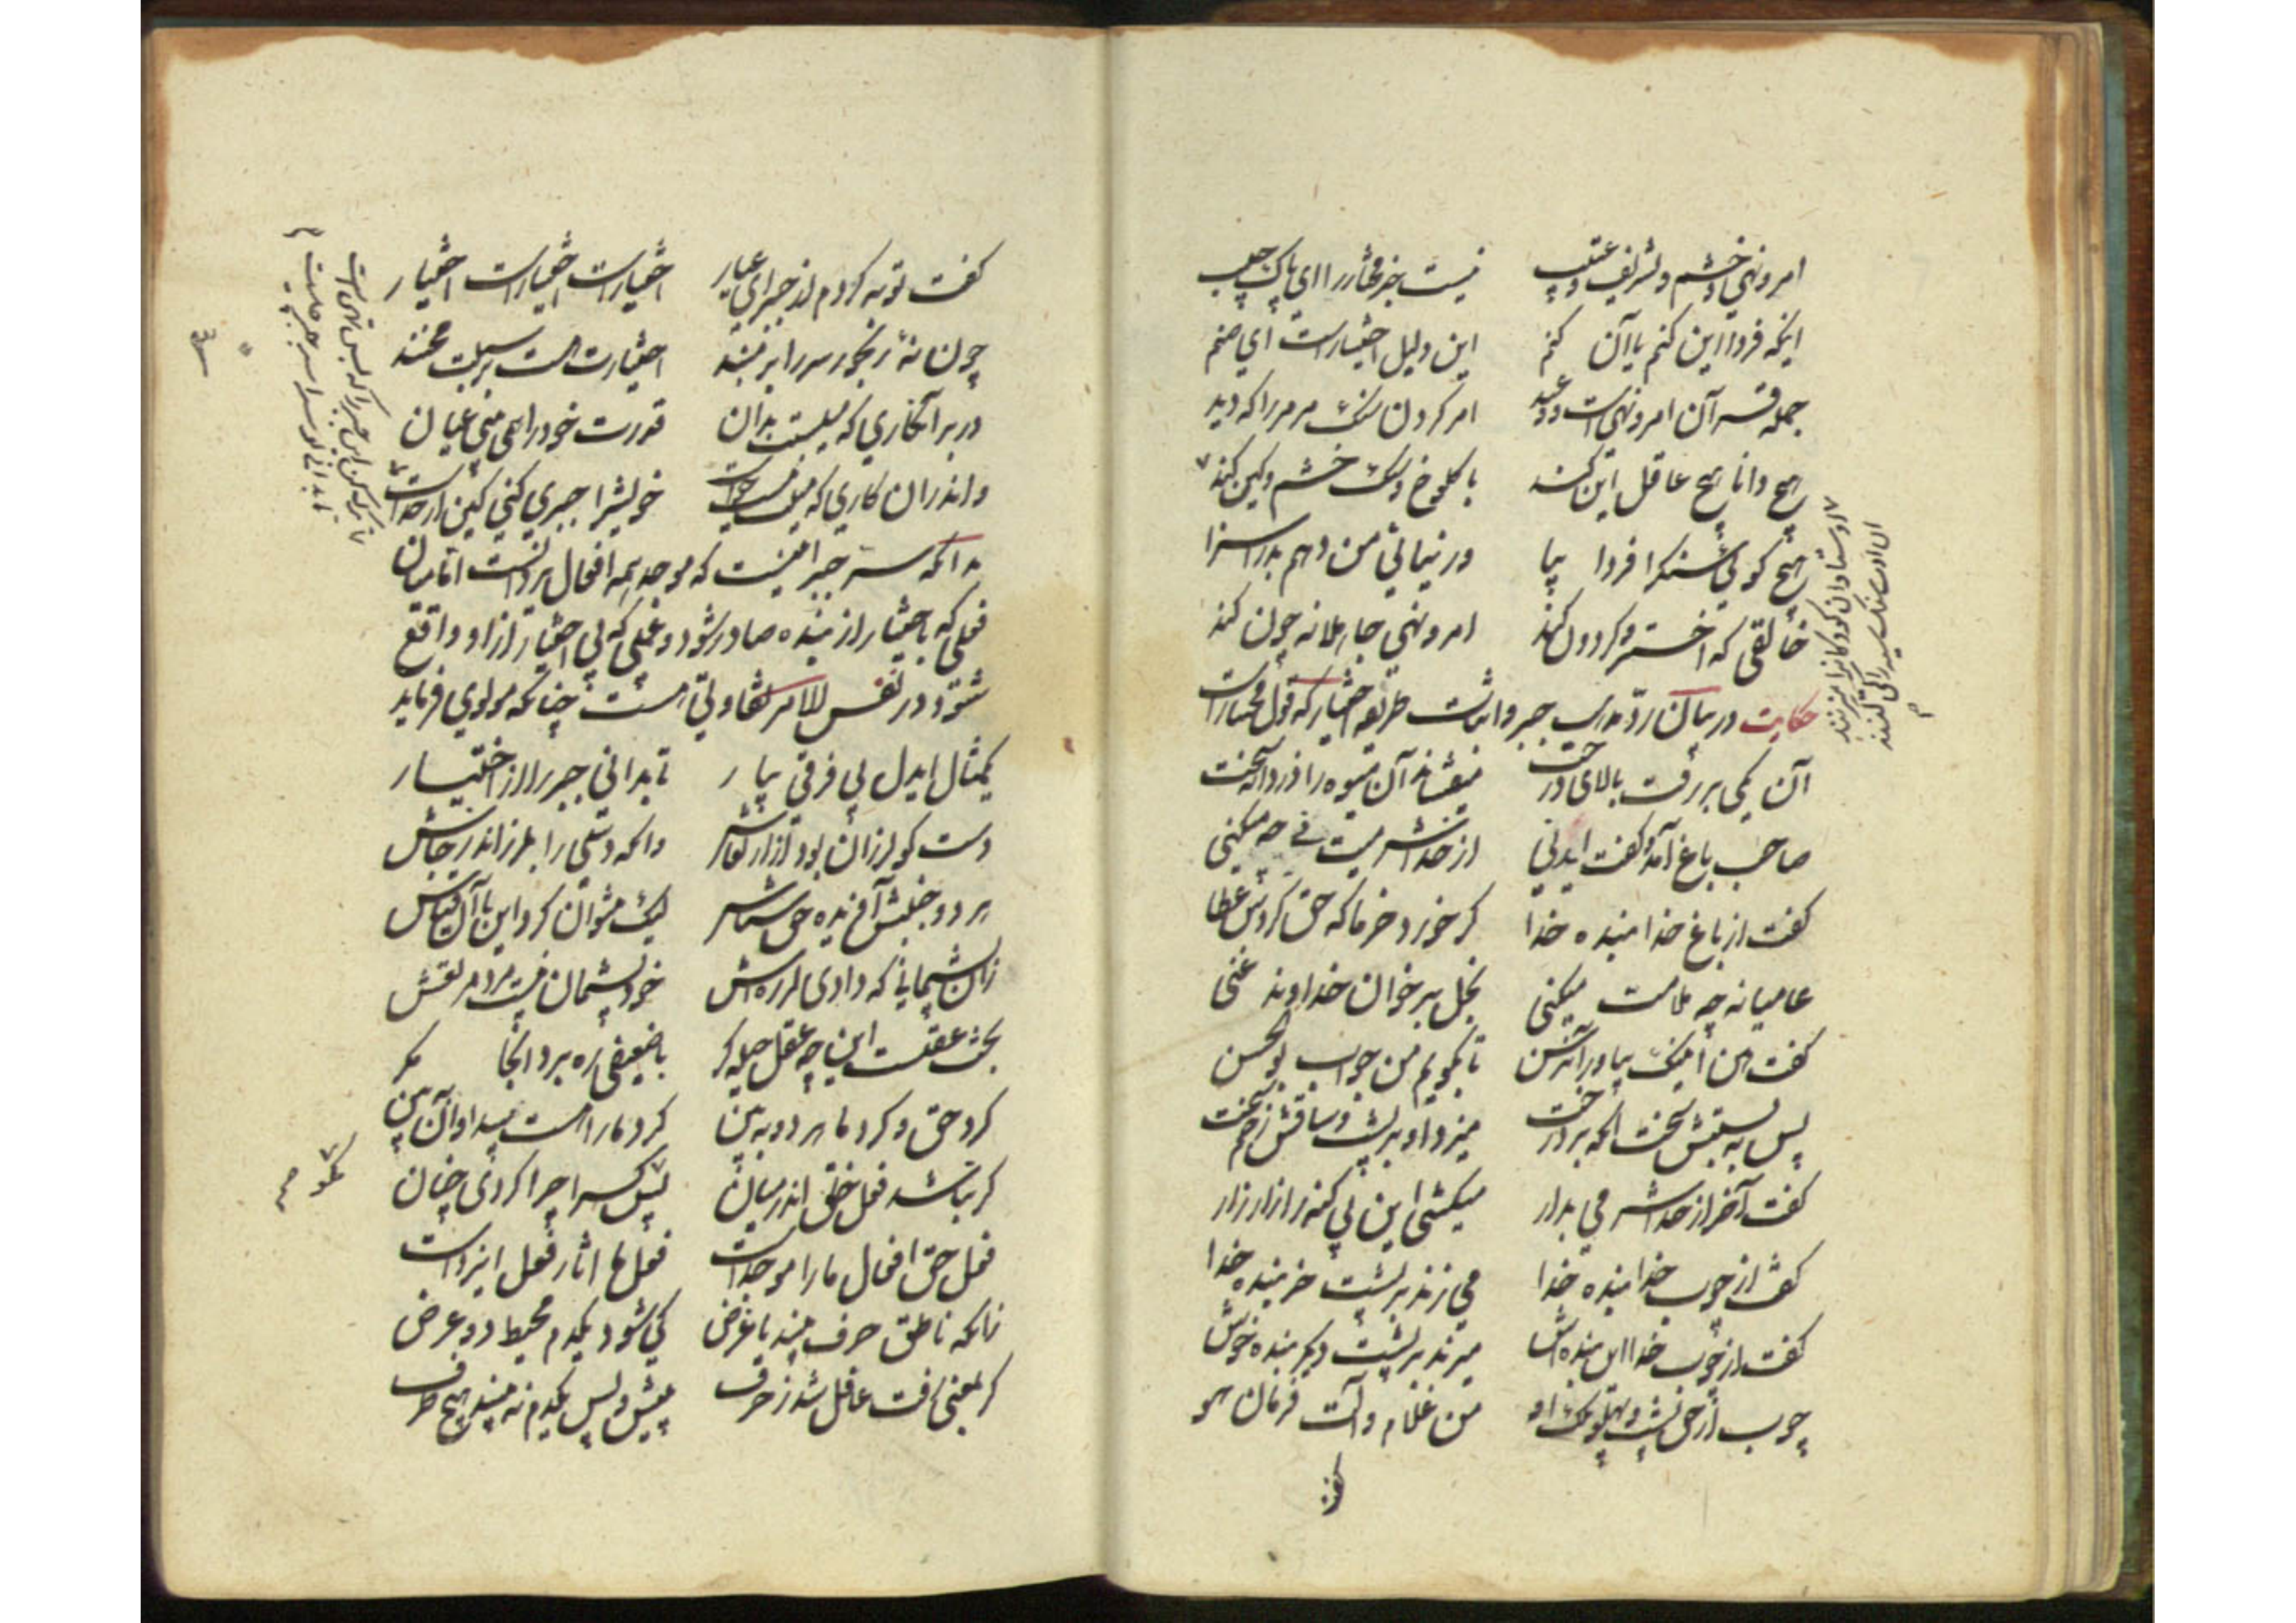 امر و نهی و خشم و تشریف و عتیب نیست جز مختار را ای پاک جیب
اینکه فردا این کنم یا آن کنم این دلیل اختیارست ای صنم
جمله قرآن امر و نهی است و وعید امر کردن سنک مرمر را که دید
هیچ دانا هیچ عاقل این کند با کلوخ و سنک خشم و کین کند
هیچ کویی سنک را فردا بیا ور نیایی من دهم بد را سزا
خالقی که اختر و کردون کند امر و نهی جاهلانه چون کند
حکایت در بیان رد مذهب جبر و اثبات طریقه اختیار که قول مختار است
آن یکی بر رفت بالای درخت میفشاند آن میوه را دزدانه سخت
صاحب باغ آمد و کفت ای دنی از خدا شرمیت نی چه میکنی
کفت از باغ خدا بنده خدا کر خورد خرما که حق کردش عطا
عامیانه چه ملامت میکنی بخل بر خوان خداوند غنی
کفت من ایبک بیاور آن رسن تا بکویم من جواب بوالحسن
پس ببستش سخت آنکه بر درخت میزد او بر پشت و ساقش زخم سخت
کفت آخر از خدا شرمی بدار میکشی این بی کنه را زار زار
کفت از چوب خدا بنده خدا می زند بر پشت خر بنده خدا
کفت از چوب خدا این بنده اش میزند بر پشت دیکر بنده خوش
چوب از حق پشت و پهلو ملک او من غلام و آلت فرمان هو
کفت
کفت توبه کردم از جبر ای عیار اختیارست اختیارست اختیار
چون نه رنجور سر را بر مبند اختیارت هست بر سبلت مخند
در هر آنکاری که میلست بدان قدرت خود را همی بینی عیان
و اندران کاری که میلت نیست و خواست خویش را جبری کنی کین از خداست
بدانکه سر جبر اینست که موجد همه افعال ایزد است اما میان
فعلی که باختیار از بنده صادر شود و فعلی که بی اختیار از او واقع
شود در نفس الامر تفاوتی هست چنانکه مولوی فرماید
یک مثال ایدل پی فرقی بیار تا بدانی جبر را از اختیار
دست کو لرزان بود از ارتعاش وانکه دستی را بلرزاند ز جاش
هر دو جنبش آفریده حق شناس لیک نتوان کرد این با آن قیاس
زان پشیمانی که دادی لرزه اش خود پشیمان نیست مرد مرتعش
بحث عقلست این چه عقل حیله کر با ضعیفی ره برد آنجا مکر
کرد حق و کرد ما هر دو ببین کرد ما را هست پیدا و آن ببین
کر نباشد فعل خلق اندر میان پس مکو کس را چرا کردی چنان
فعل حق افعال ما را موجد است فعل ما آثار فعل ایزد است
زانکه ناطق حرف بیند یا غرض کی شود یکدم محیط دو عرض
کر بمعنی رفت غافل شد ز حرف پیش و پس یکدم نه بیند هیچ طرف